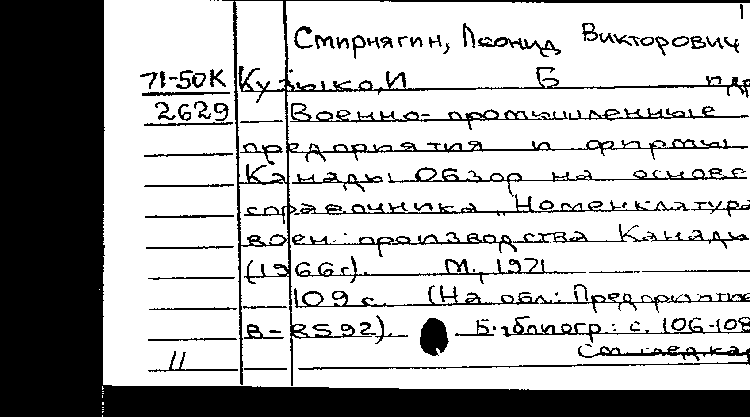 Смирнягин, Леонид Викторович
71-50К Кузько, И Б
2629 Военно-промышленные
предприятия и фирмы
Канады Обзор на основе
справочника "Номенклатура
воен. производства Канады
(1966г). М., 1971
109 с. (На обл.: Предприятие
В-8592). Библиогр.: с. 106-108
См след.кар
11